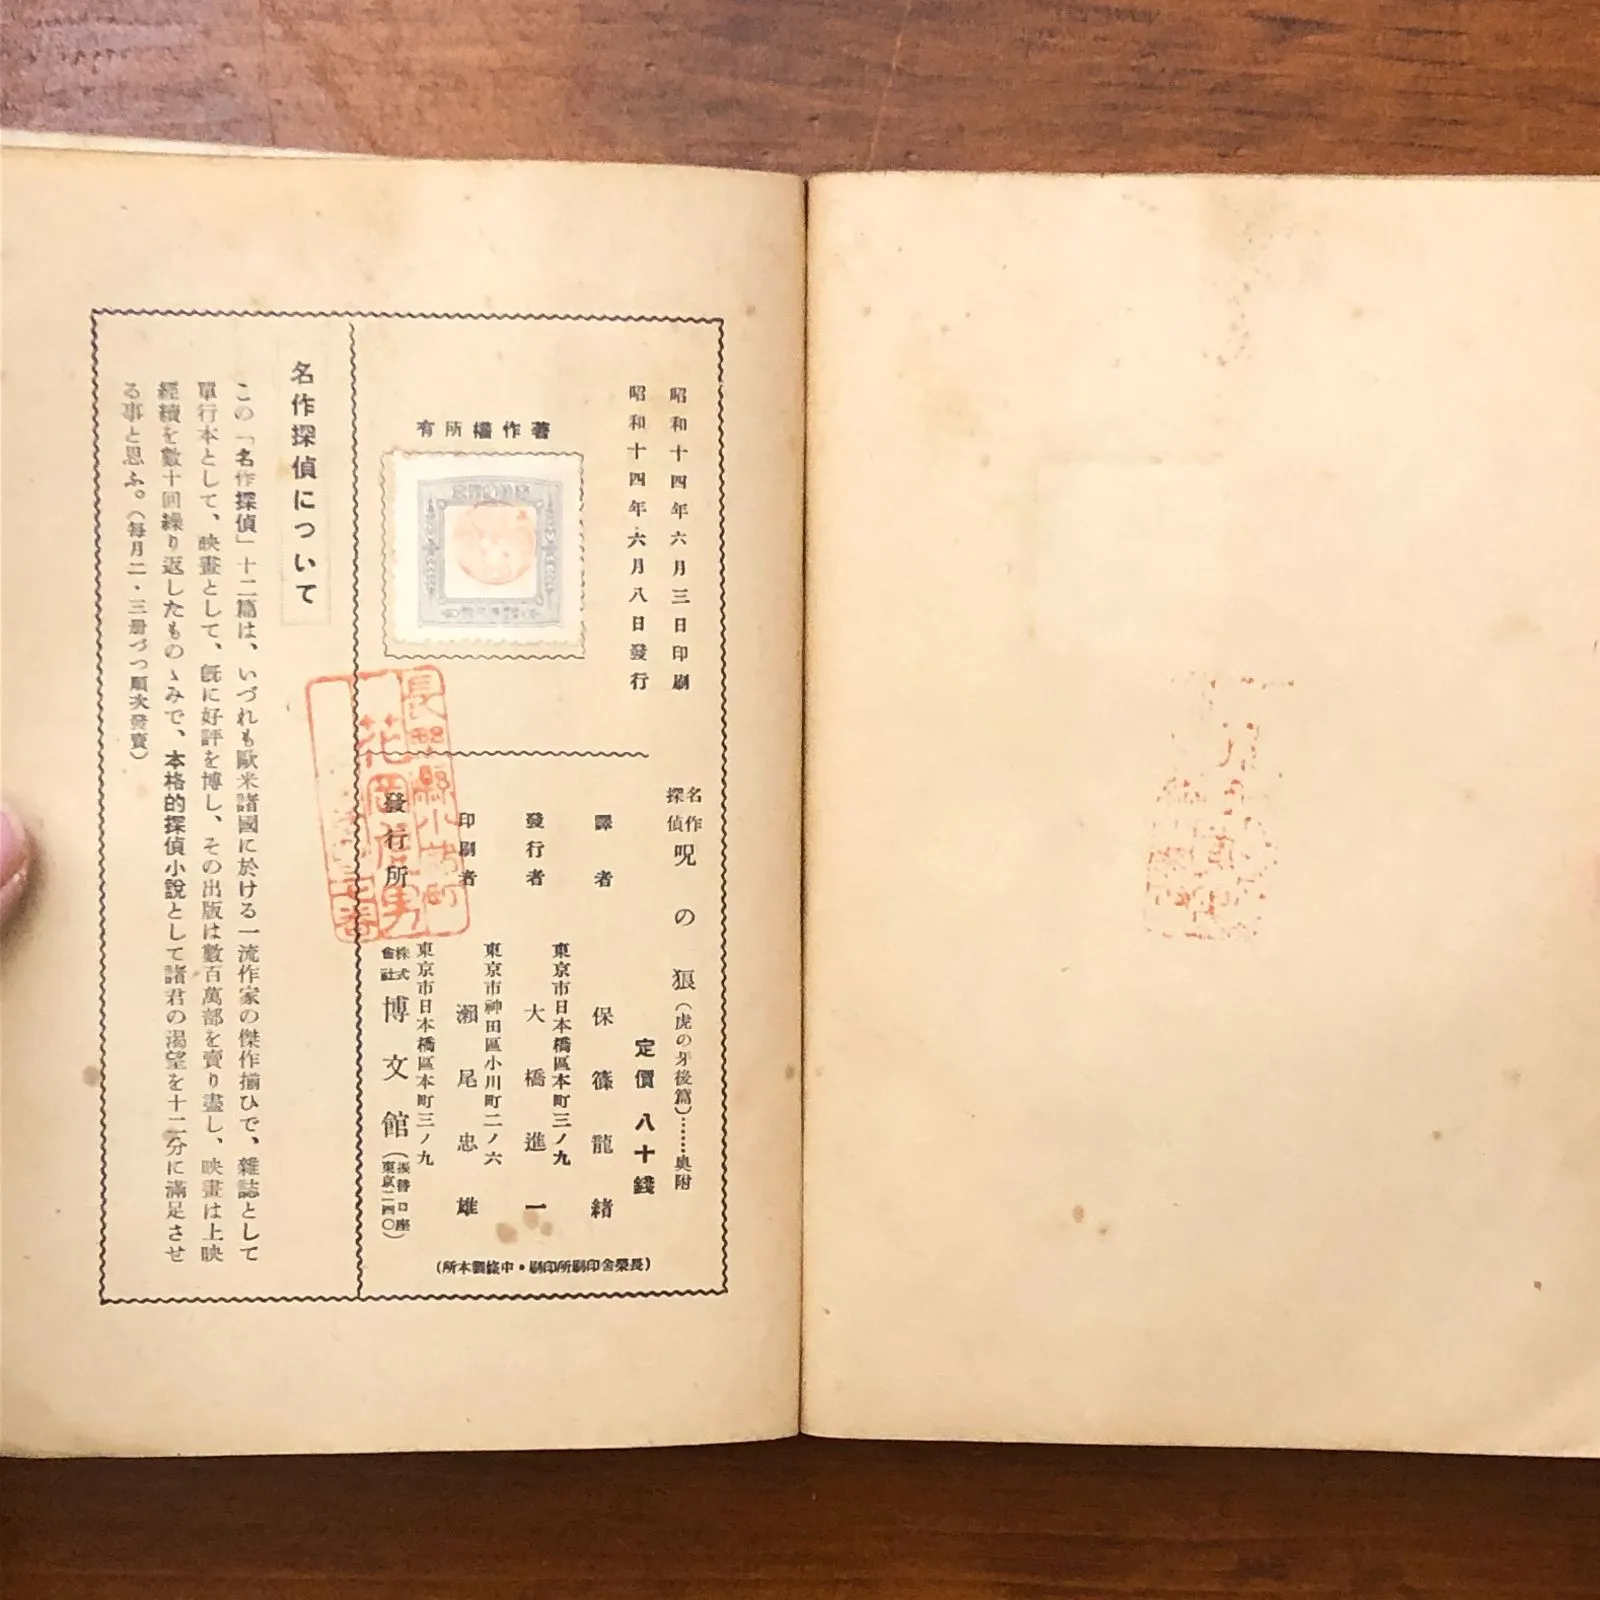 昭和十四年六月三日印刷
昭和十四年六月八日發行
著作權所有
名作探偵 呪の狼(虎の牙後篇)……奧附
定價八十錢
譯者 保篠龍緖
東京市日本橋區本町三ノ九
發行者 大橋進一
東京市神田區小川町二ノ六
印刷者 瀨尾忠雄
東京市日本橋區本町三ノ九
發行所 株式會社 博文館(振替口座東京二四〇)
(長榮舍印刷所印刷・中條製本所)
名作探偵について
この「名作探偵」十二篇は、いづれも歐米諸國に於ける一流作家の傑作揃ひで、雜誌として
單行本として、映畫として、既に好評を博し、その出版は數百萬部を賣り盡し、映畫は上映
經續を數十回繰り返したものゝみで、本格的探偵小說として諸君の渴望を十二分に滿足させ
る事と思ふ。(每月二・三册づつ順次發賣)
長野縣小諸町
花岡信男